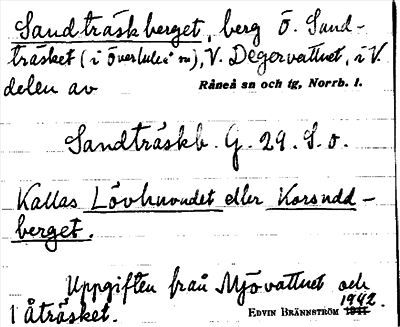 Sandträskberget, berg ö. Sand-
träsket (i Överluleå sn), V. Degervattnet, i V.
delen av Råneå sn och tg, Norrb. l.
Sandträskb. G. 29. S. o.
Kallas Lövhuvudet eller Korsudd-
berget.
Uppgiften från Mjövattnet och
1942.
Åträsket. EDVIN BRÄNNSTRÖM 1941